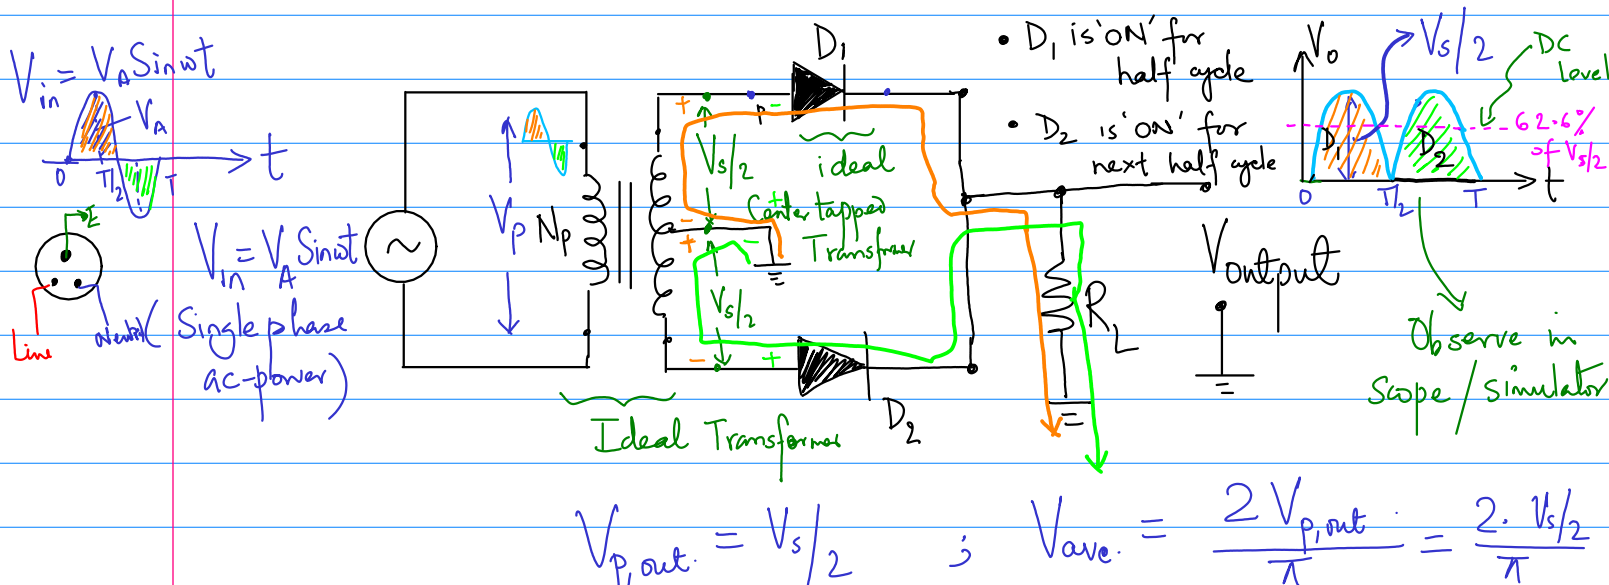 V_in = V_A Sinωt
V_A
0 T/2 T t
E
Line
neutral
V_in = V_A Sinωt
(Single phase
ac-power)
~
V_p
N_p
D_1
+ -
V_s/2
ideal
- +
+ -
Center tapped
Transformer
V_s/2
- +
D_2
Ideal Transformer
R_L
• D_1 is 'ON' for
half cycle
• D_2 is 'ON' for
next half cycle
V_output
V_o
V_s/2
DC
Level
62.6%
of V_s/2
D_1 D_2
0 T/2 T t
Observe in
Scope/Simulator
V_p,out. = V_s/2 ; V_ave. = 2 V_p,out. / π = 2. V_s/2 / π